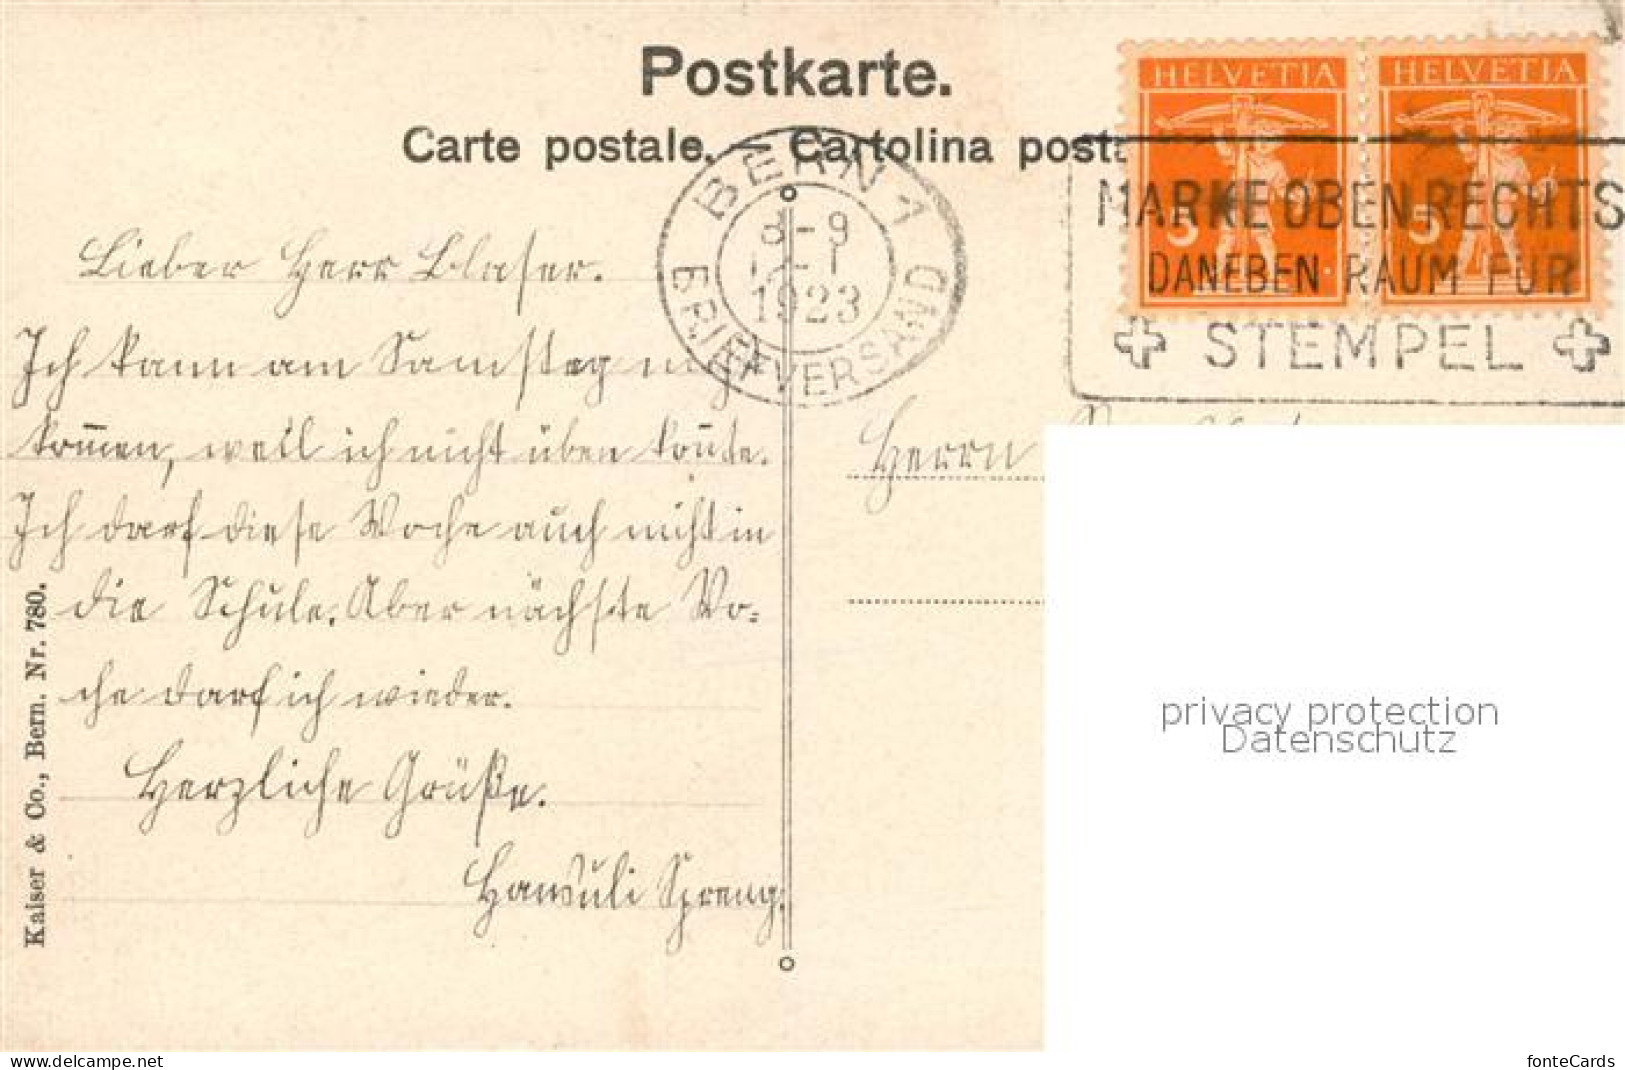 Postkarte.
Carte postale. Cartolina posta
HELVETIA HELVETIA
5 5
BERN 1
8-9
1923
BRIEFVERSAND
MARKE OBEN RECHTS
DANEBEN RAUM FÜR
STEMPEL
Lieber Herr Blaser.
Ich kann am Samstag nicht
kom̄en, weil ich nicht üben kon̄te.
Ich darf diese Woche auch nicht in
die Schule. Aber nächste Wo-
che darf ich wieder.
Herzliche Grüße.
Hansuli Spreng.
Herrn
Kaiser & Co., Bern. Nr. 780.
privacy protection
Datenschutz
www.delcampe.net
fonteCards